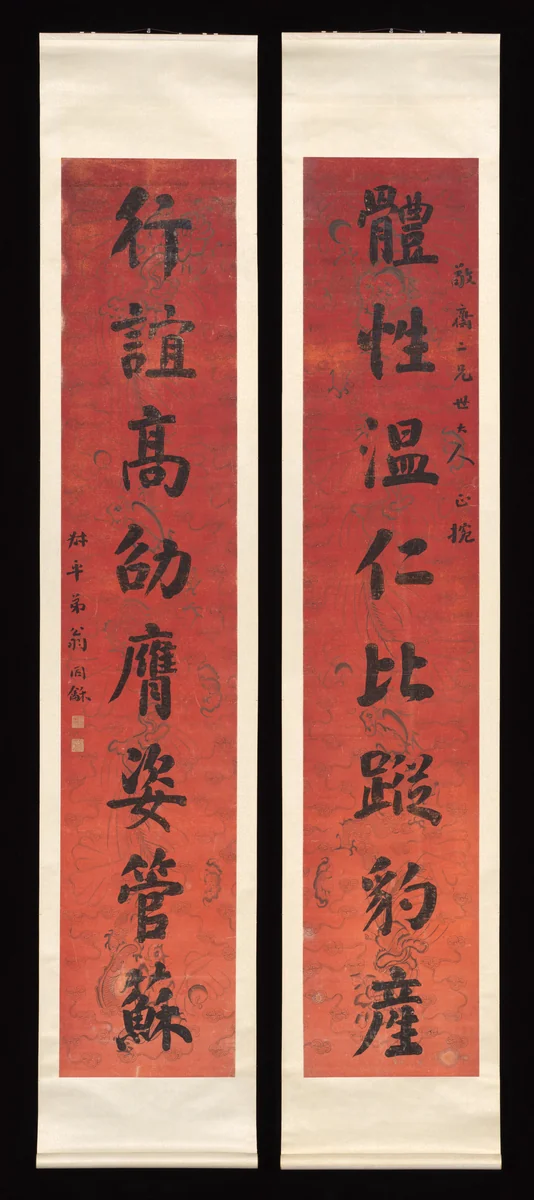 體性溫仁比蹤豹產
敬齋二兄世大人正捥
行誼高劭膺姿管蘇
叔平弟翁同龢